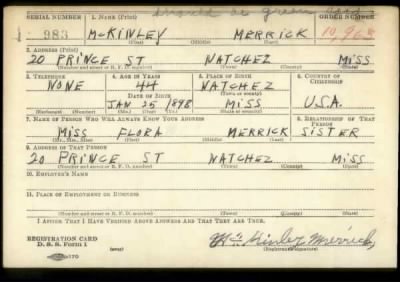 should be green card
SERIAL NUMBER 1. NAME (Print) ORDER NUMBER
983 McKINLEY MERRICK 10,968
(First) (Middle) (Last)
2. ADDRESS (Print)
20 PRINCE ST NATCHEZ MISS
(Number and street or R. F. D. number) (Town) (County) (State)
3. TELEPHONE 4. AGE IN YEARS 5. PLACE OF BIRTH 6. COUNTRY OF CITIZENSHIP
NONE 44 NATCHEZ
DATE OF BIRTH (Town or county)
JAN 25 1898 MISS U.S.A.
(Exchange) (Number) (Mo.) (Day) (Yr.) (State or country)
7. NAME OF PERSON WHO WILL ALWAYS KNOW YOUR ADDRESS 8. RELATIONSHIP OF THAT PERSON
MISS FLORA MERRICK SISTER
(Mr., Mrs., Miss) (First) (Middle) (Last)
9. ADDRESS OF THAT PERSON
20 PRINCE ST NATCHEZ MISS
(Number and street or R. F. D. number) (Town) (County) (State)
10. EMPLOYER'S NAME
11. PLACE OF EMPLOYMENT OR BUSINESS
(Number and street or R. F. D. number) (Town) (County) (State)
I AFFIRM THAT I HAVE VERIFIED ABOVE ANSWERS AND THAT THEY ARE TRUE.
REGISTRATION CARD
D. S. S. Form 1 (over) McKinley Merrick
(Registrant's signature)